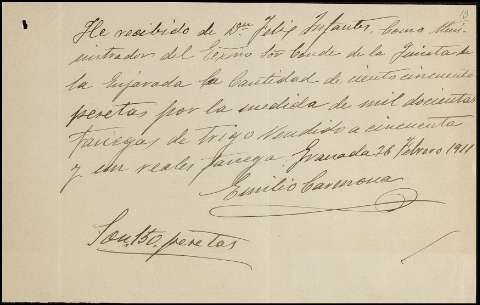 10
He recibido de Dn Felix Infantes, como Admi-
nistrador del Exmo Sor Conde de la Quinta de
la Enjarada la Cantidad de ciento cincuenta
pesetas por la medida de mil docientas
fanegas de trigo vendido a cincuenta
y un reales fanega. Granada 26 Febrero 1911
Emilio Carmona
Son, 150, pesetas